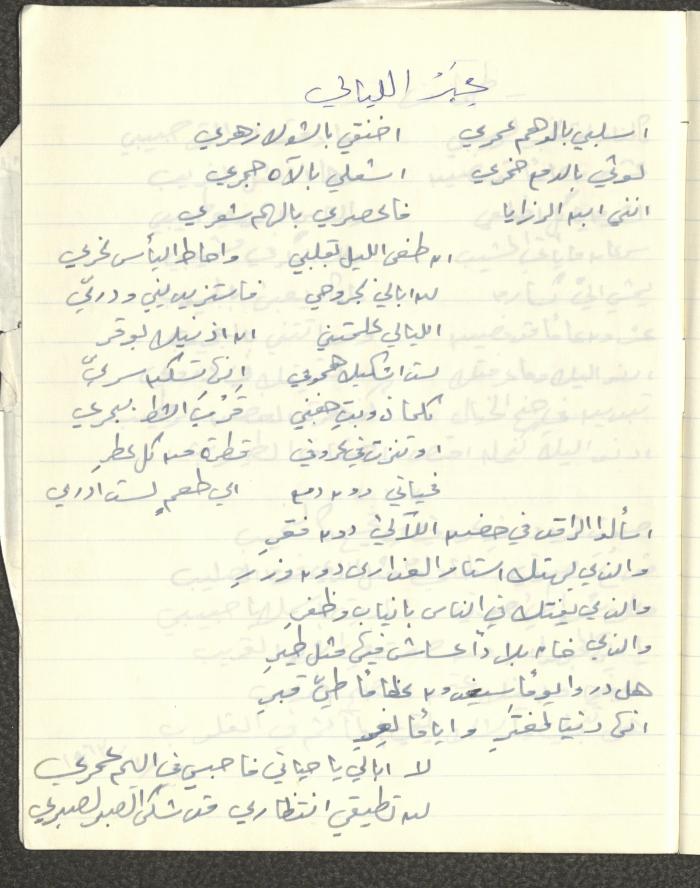 عِبَرُ الليالي
اسلبي بالوهم عمري اخنقي بالشوك زهري
لوثي بالدمع خمري اشعلي بالآه جمري
انني ابن الرزايا فاعصري بالهم شعري
ان طغى الليل بقلبي واحاط اليأس نحري
لن ابالي بجروحي فاستزيديني ودرّي
الليالي علمتني ان اذنيك لوقر
لست اشكيك همومي إنها تسكن سرّي
كلما ذوبت جفني قرُبَ الشط ببحري
او تنزت في عروقي قطرة من كل عطرِ
فحياتي دون دمع اي طعمٍ لست ادري
اسألوا الراقد في حضن اللآلئ دون فقرِ
والذي يهتك استار العذارى دون وزرِ
والذي يفتك في الناس بانياب وظفرِ
والذي خان بلاداً عاش فيها مثل طيرِ
هل دروا يوماً سيغدون عظاماً طيّ قبرِ
انها دنيا لمغترٍ واياماً لغرِ
لا ابالي يا حياتي فاحبسي في الهم عمري
لن تطيقي انتظاري قد شكى الصبر لصبري